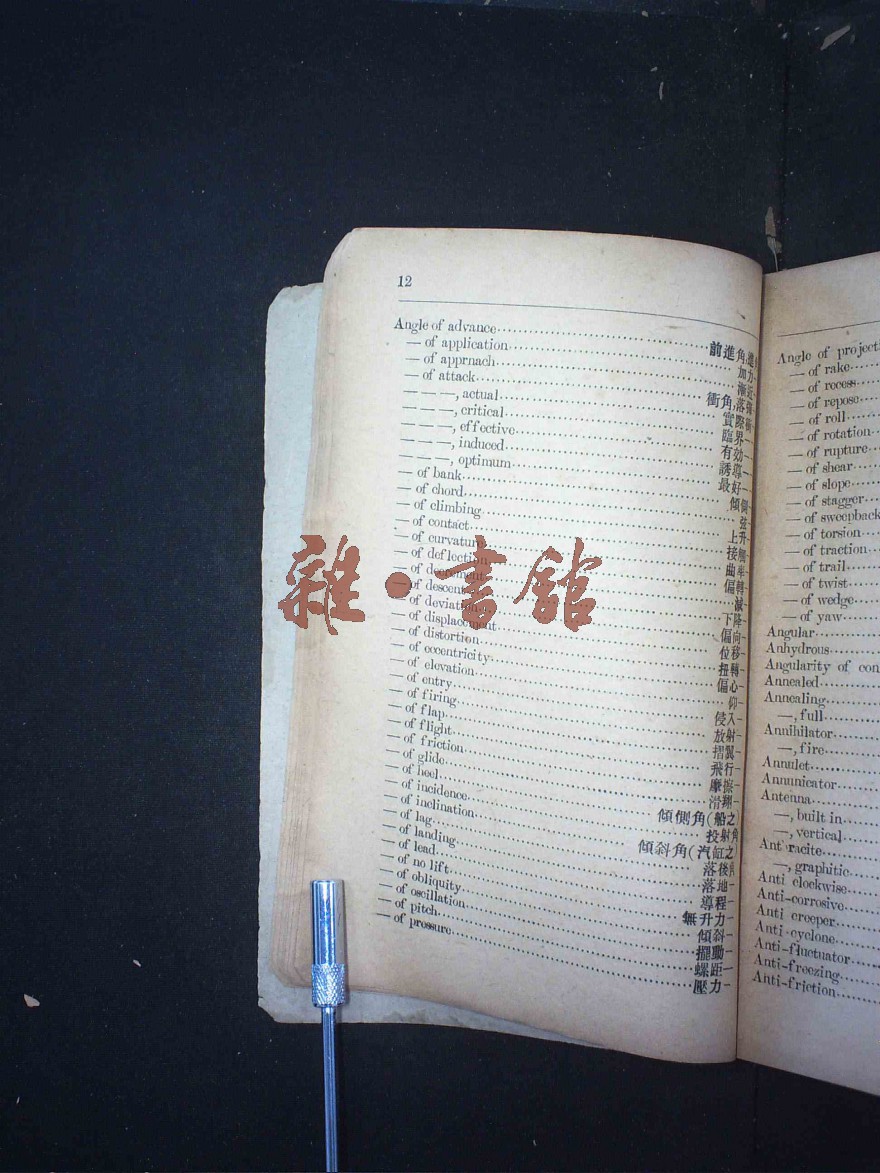 12
Angle of advance 前進角,進
— of application 加力-
— of apprnach 漸近-
— of attack 衝角,落
— — —, actual 實際衝
— — —, critical 臨界-
— — —, effective 有効-
— — —, induced 誘導-
— — —, optimum 最好-
— of bank 傾側
— of chord 弦
— of climbing 上升-
— of contact 接觸-
— of curvature 曲率-
— of deflection 偏轉-
— of decrement 減-
— of descent 下降-
— of deviation 偏向-
— of displacement 位移-
— of distortion 扭轉-
— of eccentricity 偏心-
— of elevation 仰-
— of entry 侵入-
— of firing 放射-
— of flap 摺翼-
— of flight 飛行-
— of friction 摩擦-
— of glide 滑翔-
— of heel 傾側角(船之
— of incidence 投射角
— of inclination 傾斜角(汽缸之
— of lag 落後角
— of landing 落地-
— of lead 導程-
— of no lift 無升力-
— of obliquity 傾斜-
— of oscillation 擺動-
— of pitch 螺距-
— of pressure 壓力-
Angle of projecti
— of rake
— of recess
— of repose
— of roll
— of rotation
— of rupture
— of shear
— of slope
— of stagger
— of sweepback
— of torsion
— of traction
— of trail
— of twist
— of wedge
— of yaw
Angular
Anhydrous
Angularity of con
Annealed
Annealing
—, full
Annihilator
—, fire
Annulet
Annunicator
Antenna
—, built in
—, vertical
Ant racite
—, graphitic
Anti clockwise
Anti-corrosive
Anti creeper
Anti-cyclone
Anti-fluctuator
Anti-freezing
Anti-friction
雜·書館